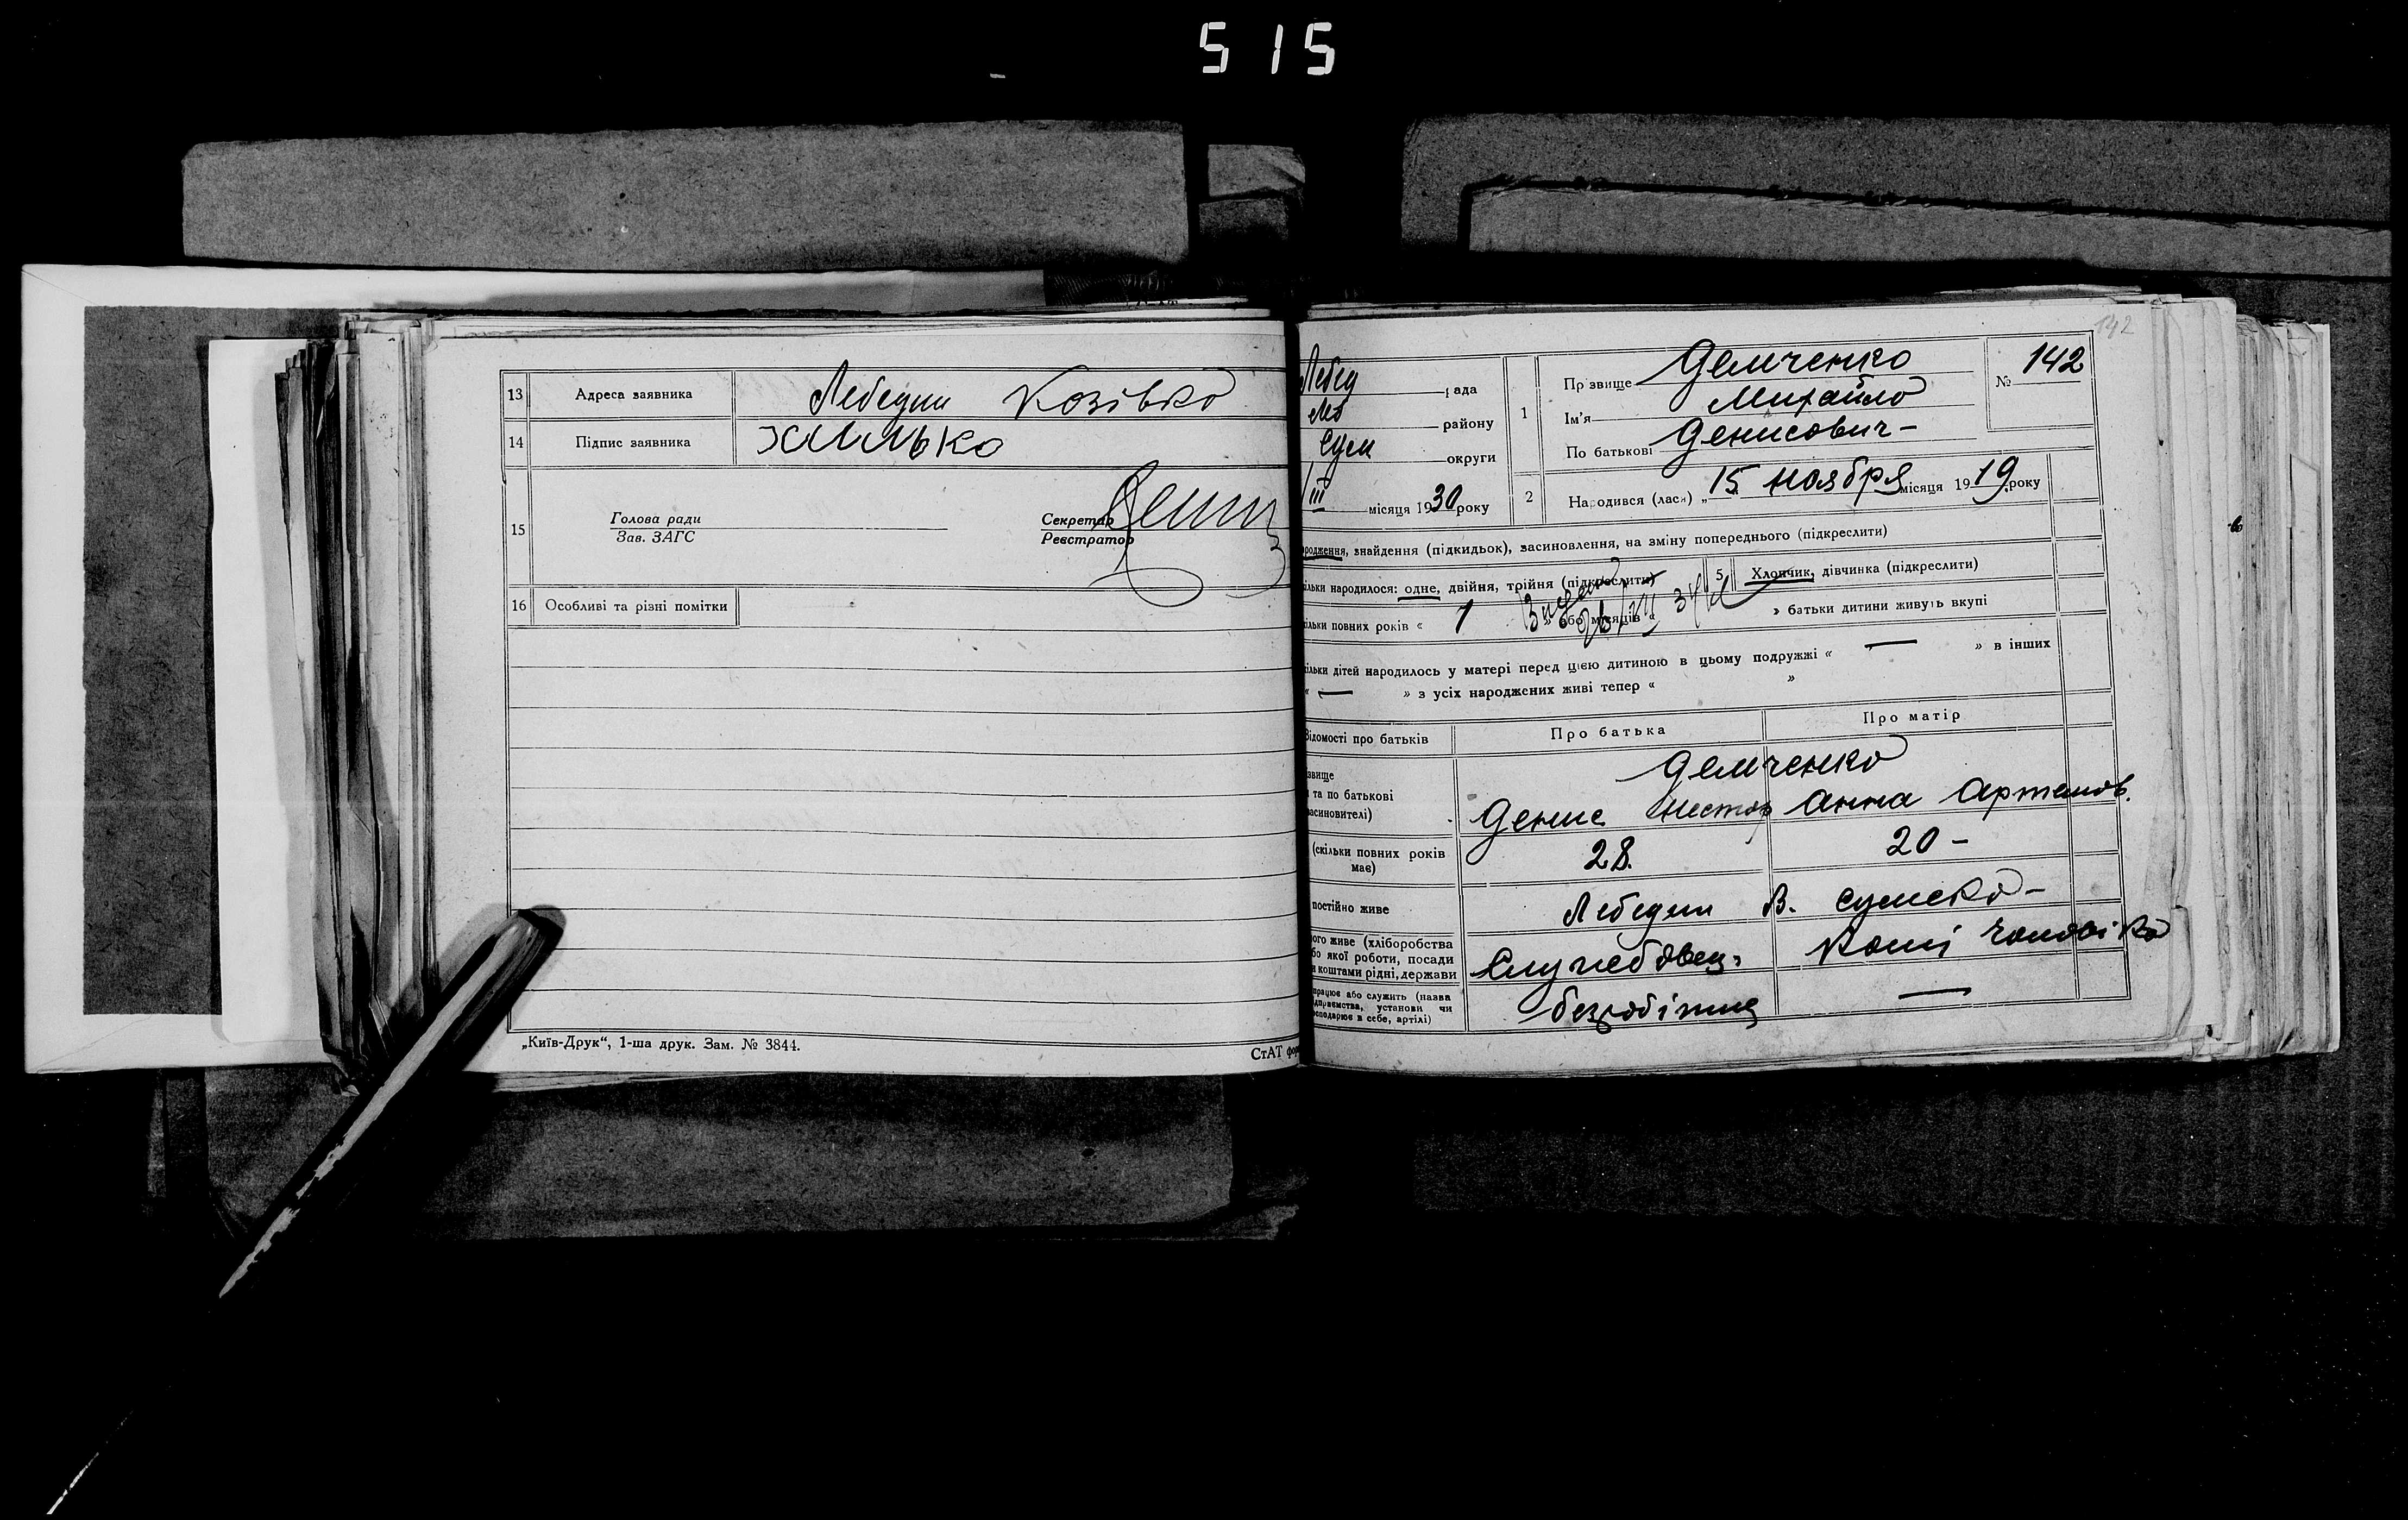 515
13 Адреса заявника Лебедин Козівка
14 Підпис заявника Хилько
15 Голова ради
Зав. ЗАГС
Секретар
Реєстратор
16 Особливі та різні помітки
„Київ-Друк“, 1-ша друк. Зам. № 3844.
СтАТ фор
142
Лебед рада
району
Сум округи
III місяця 1930 року
1 Прізвище Демченко
Ім'я Михайло
По батькові Денисович-
№ 142
2 Народився (лася) „15 ноября місяця 1919 року
родження, знайдення (підкидьок), засиновлення, на зміну попереднього (підкреслити)
ільки народилося: одне, двійня, трійня (підкреслити) 5 Хлопчик, дівчинка (підкреслити)
ільки повних років « 1 » або місяців « » батьки дитини живуть вкупі
ільки дітей народилось у матері перед цією дитиною в цьому подружжі « — » в інших
« — » з усіх народжених живі тепер « »
Відомості про батьків Про батька Про матір
звище Демченко
та по батькові
засиновителі) Денис Нестор Анна Артемов.
(скільки повних років
має) 28. 20 -
постійно живе Лебедин В. Сумська-
ого живе (хліборобства
бо якої роботи, посади
и коштами рідні, держави Службовец. Кошт чоловіка
працює або служить (назва
ідприємства, установи чи
осподарює в себе, артілі) безробітний —